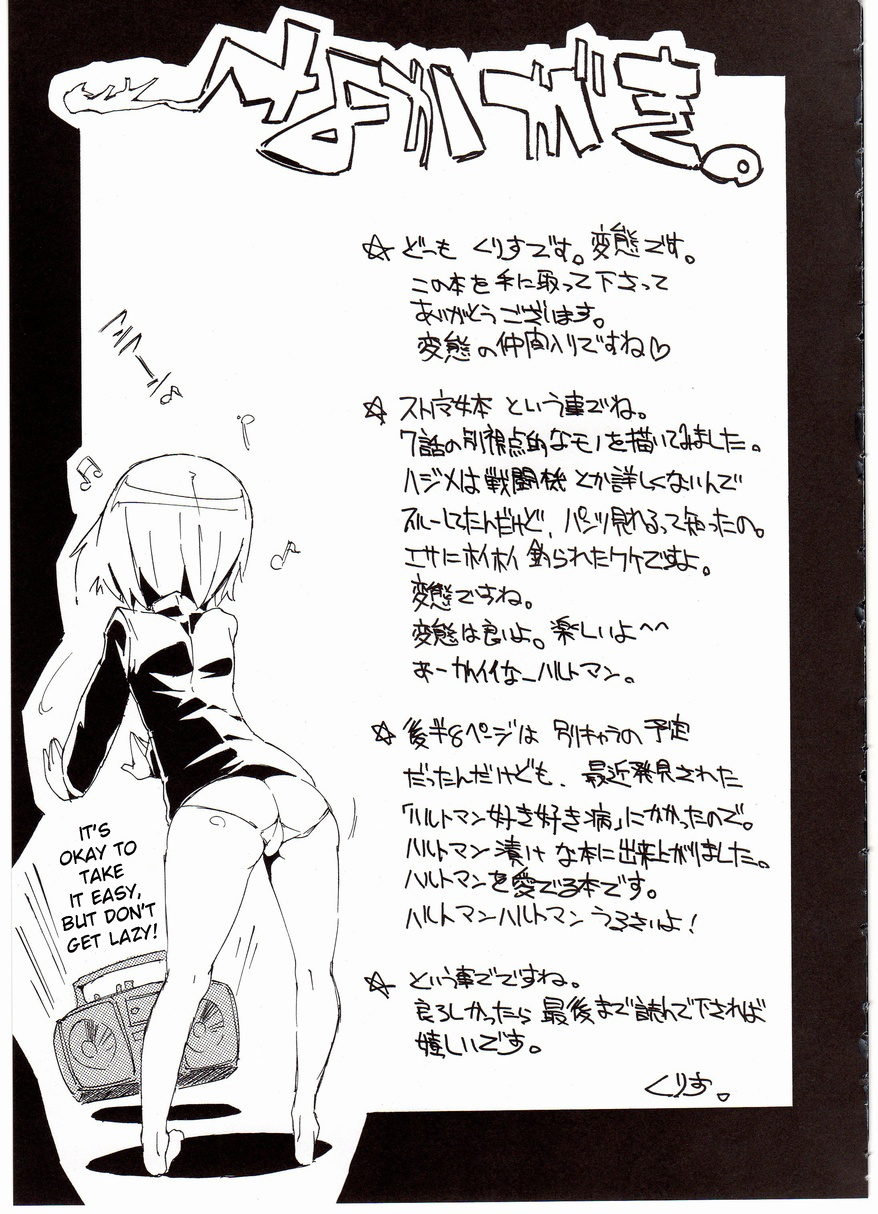 なかがき。
☆ どーも くりすです。変態です。
この本を手に取って下さって
ありがとうございます。
変態の仲間入りですね♡
☆ ストパン本 という事でね。
7話の別視点的なモノを描いてみました。
ハジメは戦闘機とか詳しくないんで
スルーしてたんだけど、パンツ見れるって知ったの。
エサにホイホイ釣られたワケですよ。
変態ですね。
変態は良いよ。楽しいよ^^
あーかわイイなーハルトマン。
☆ 後半8ページは別キャラの予定
だったんだけども、最近発見された
「ハルトマン好き好き病」にかかったので。
ハルトマン漬けな本に出来上がりました。
ハルトマンを愛でる本です。
ハルトマンハルトマンうるさいよ!
☆ という事でですね。
良ろしかったら最後まで読んで下されば
嬉しいです。
くりす。
IT'S
OKAY TO
TAKE
IT EASY,
BUT DON'T
GET LAZY!